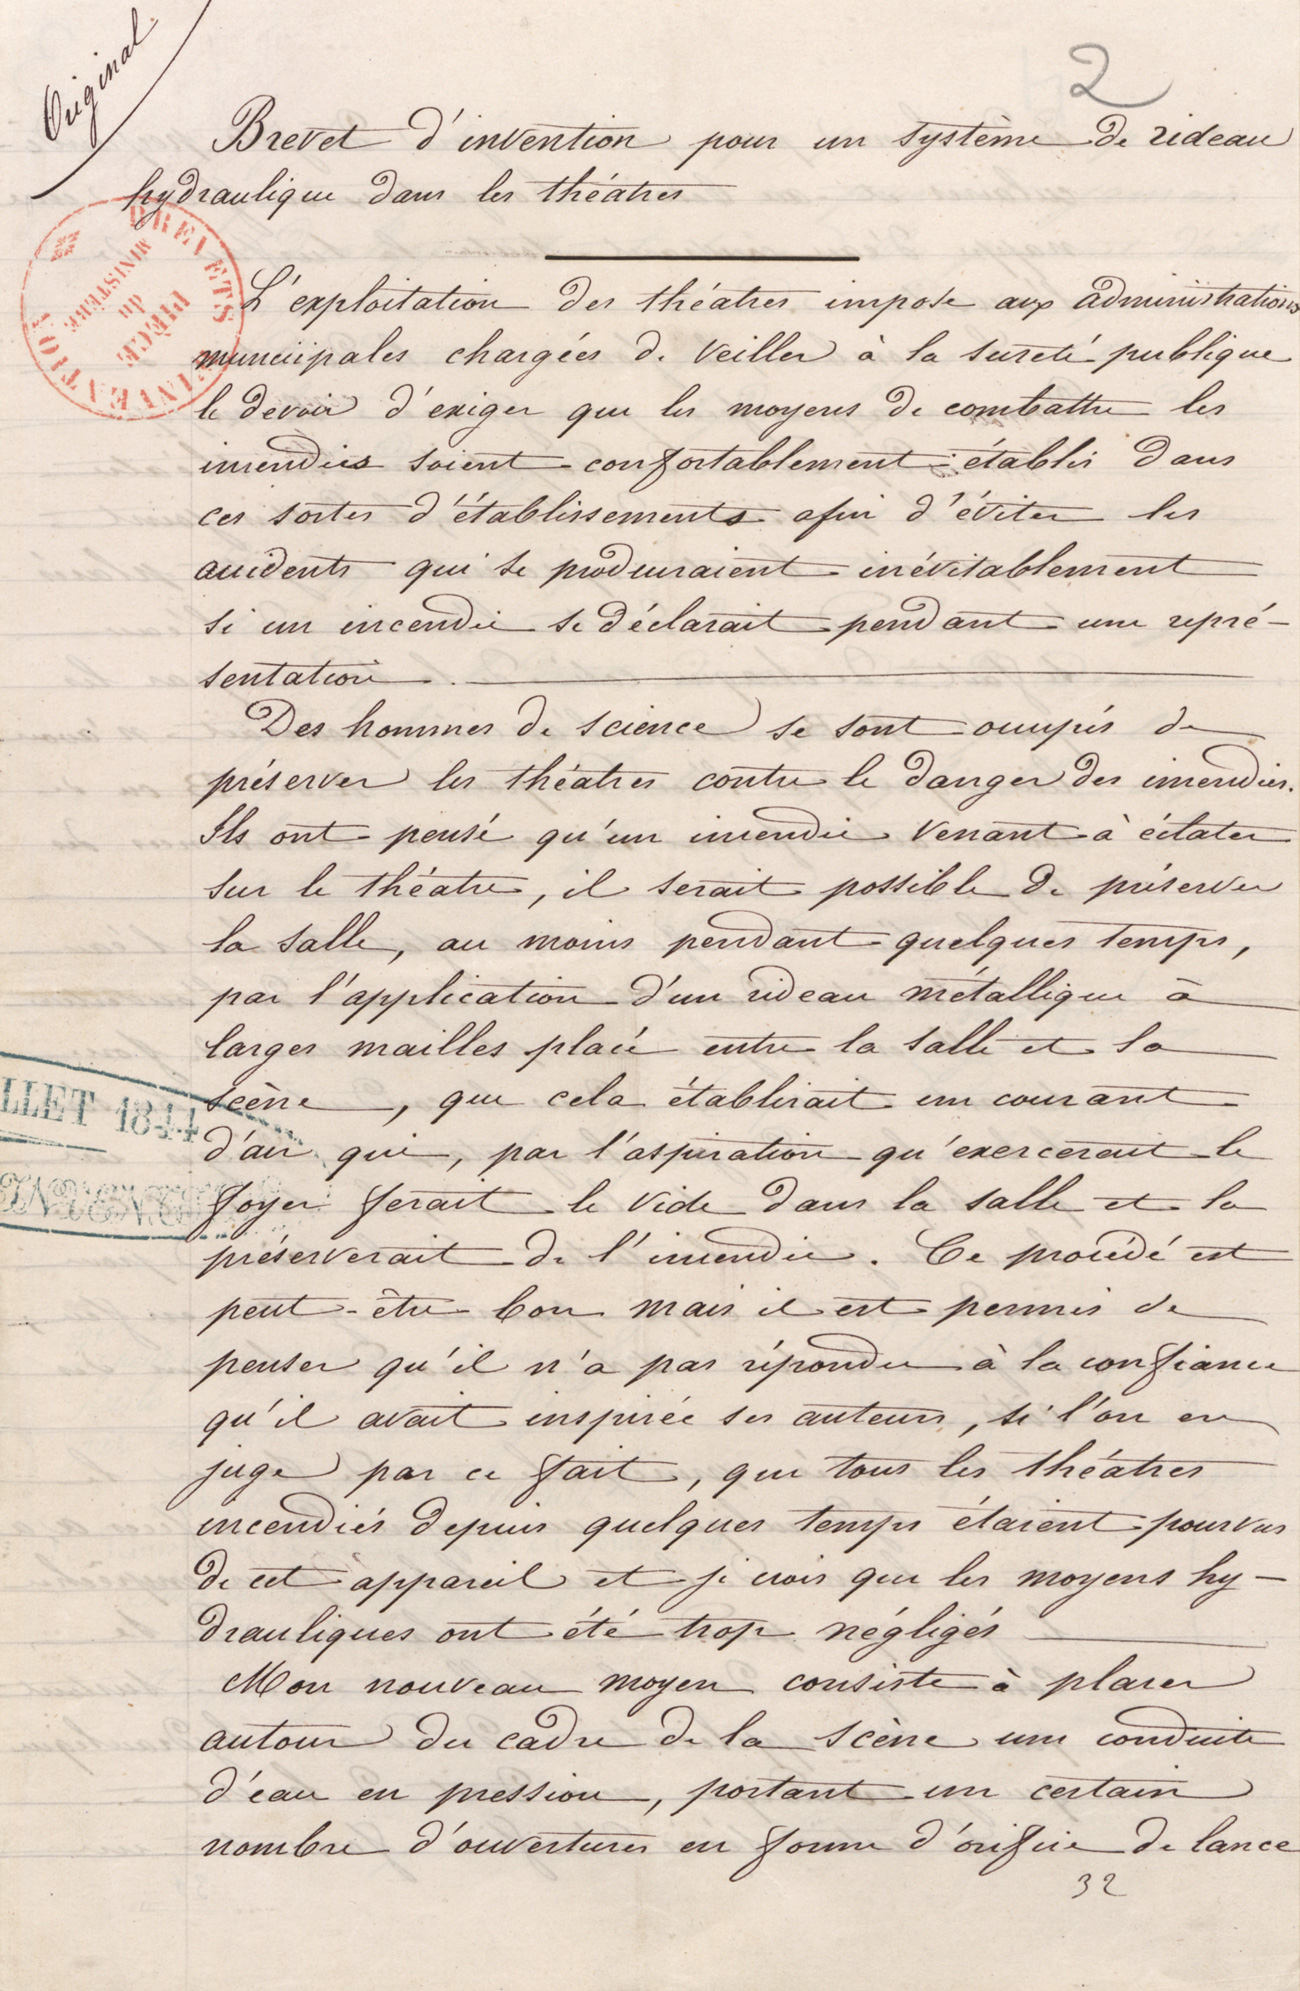 Original
2
Brevet d'invention pour un système de rideau
hydraulique dans les théatres
BREVETS D'INVENTION
PIÈCE
du
MINISTÈRE
L'exploitation des théatres impose aux administrations
municipales chargées de veiller à la sureté publique
le devoir d'exiger que les moyens de combattre les
incendies soient confortablement établis dans
ces sortes d'établissements afin d'éviter les
accidents qui se produiraient inévitablement
si un incendie se déclarait pendant une repré-
sentation.
Des hommes de science se sont occupés de
préserver les théatres contre le danger des incendies.
Ils ont pensé qu'un incendie venant à éclater
sur le théatre, il serait possible de préserver
la salle, au moins pendant quelques temps,
par l'application d'un rideau métallique à
larges mailles placé entre la salle et la
scène, que cela établirait un courant
LLET 1844
d'air qui, par l'aspiration qu'exercerait le
foyer ferait le vide dans la salle et la
préserverait de l'incendie. Ce procédé est
peut-être bon mais il est permis de
penser qu'il n'a pas répondu à la confiance
qu'il avait inspirée ses auteurs, si l'on en
juge par ce fait, que tous les théatres
incendiés depuis quelques temps étaient pourvus
de cet appareil et je crois que les moyens hy-
drauliques ont été trop négligés
Mon nouveau moyen consiste à placer
autour du cadre de la scène une conduite
d'eau en pression, portant un certain
nombre d'ouvertures en forme d'orifice de lance
32